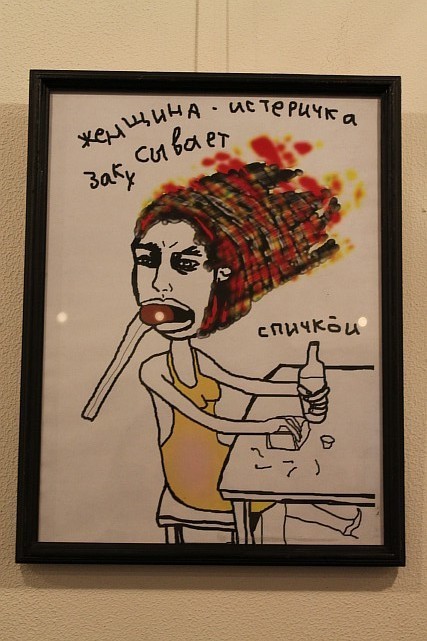 женщина - истеричка
заку сывает
спичкой